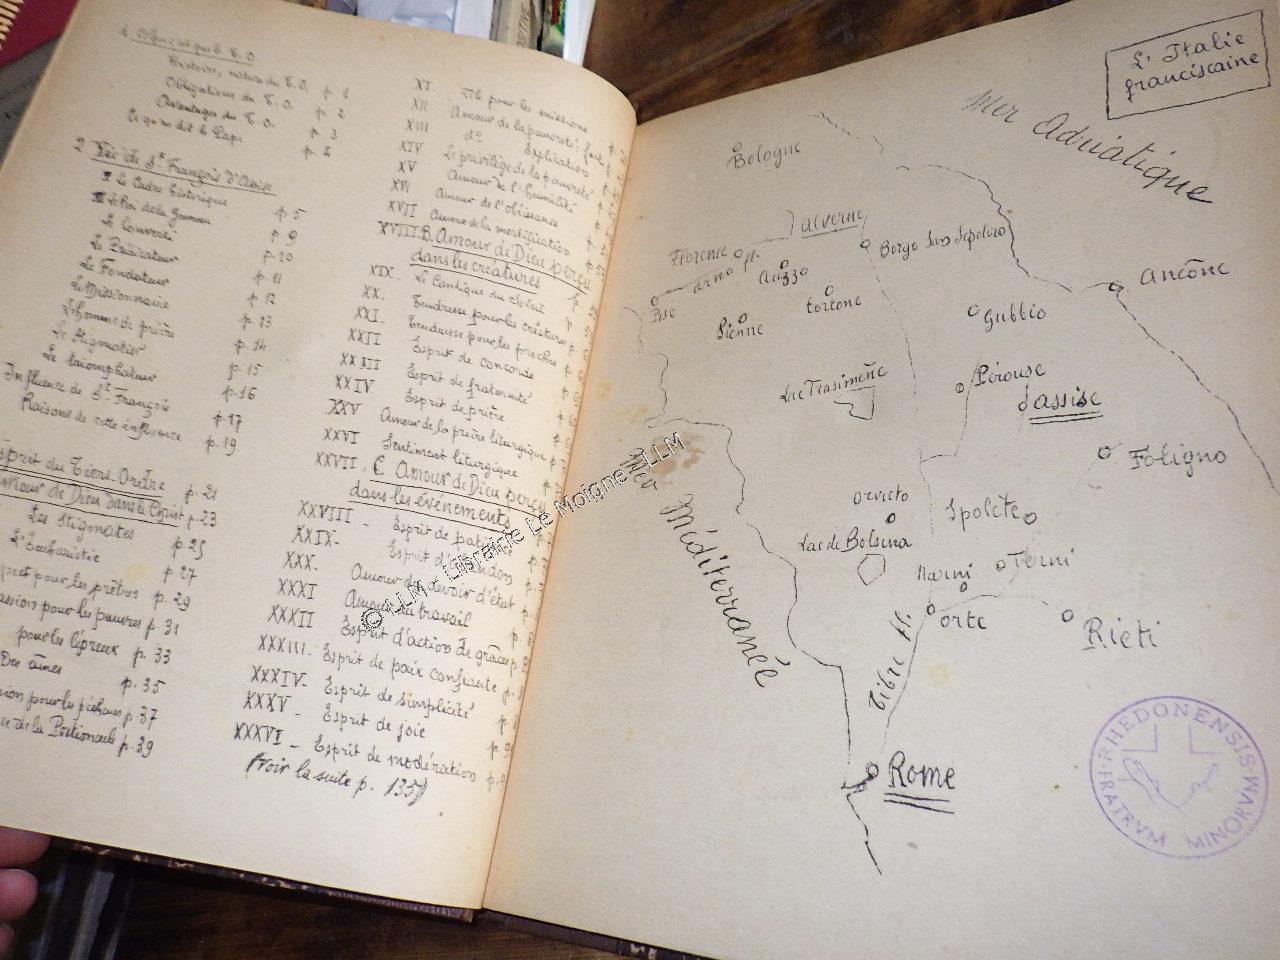 Histoire, nature du T.O. p. 1
Obligations du T.O. p. 2
Avantages du T.O. p. 3
Ce qu'en dit le Pape p. 4
2 Vie de St François d'Assise
I Le Cadre historique p. 5
Le Roi de la Jeunesse p. 9
Le Converti p. 10
Le Prédicateur p. 11
Le Fondateur p. 12
Le Missionnaire p. 13
L'homme de prière p. 14
Le Stigmatisé p. 15
Le triomphateur p. 16
Influence de St François p. 17
Raisons de cette influence p. 19
Esprit du Tiers-Ordre p. 21
Amour de Dieu dans le Christ p. 23
Les Stigmates p. 25
L'Eucharistie p. 27
pour les prêtres p. 29
pour les pauvres p. 31
pour les lépreux p. 33
Des âmes p. 35
pour les pécheurs p. 37
de la Portioncule p. 39
XI. Zèle pour les missions
XII Amour de la pauvreté
XIII do Explications
XIV Le privilège de la pauvreté
XV Amour de l'humilité
XVI Amour de l'obéissance
XVII Amour de la mortification
XVIII. B. Amour de Dieu perçu
dans les créatures
XIX. Le Cantique du Soleil
XX. Tendresse pour les créatures
XXI. Tendresse pour les proches
XXII Esprit de concorde
XXIII Esprit de fraternité
XXIV Esprit de prière
XXV Amour de la prière liturgique
XXVI Sentiment liturgique
XXVII. C Amour de Dieu perçu
dans les événements
XXVIII - Esprit de patience
XXIX- Esprit d'abandon
XXX- Amour du devoir d'état
XXXI Amour du travail
XXXII Esprit d'action de grâces
XXXIII- Esprit de paix confiante
XXXIV- Esprit de simplicité
XXXV - Esprit de joie
XXXVI - Esprit de modération
(Voir la suite p. 135)
L'Italie
franciscaine
Mer Adriatique
Bologne
Talverne
Florence
Borgo San Sepolcro
arno fl.
Arezzo
Ancône
Cortone
Pise
Sienne
Gubbio
Lac Trasimène
Pérouse
assise
Foligno
Mer Méditerranée
orvieto
Spolète
Lac de Bolsena
Narni
Terni
orte
Rieti
Tibre fl.
Rome
RHEDONENSIS
FRATRVM MINORVM
© LLM - Librairie Le Moigne - LLM